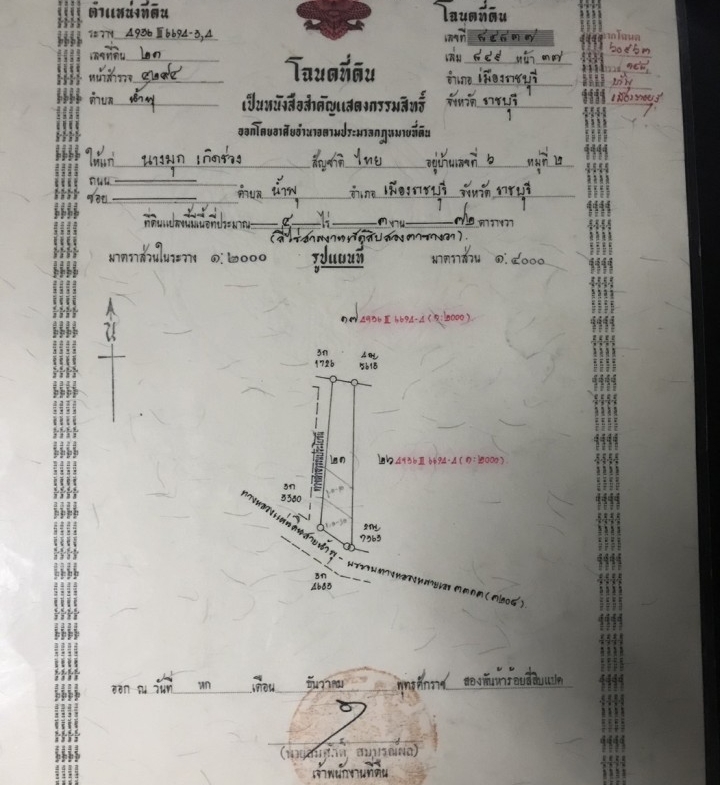 ตำแหน่งที่ดิน
ระวาง 4936 II 6694-3,4
เลขที่ดิน ๒๓
หน้าสำรวจ ๔๒๙๔
ตำบล น้ำพุ
โฉนดที่ดิน
เลขที่ ๘๔๘๓๗
เล่ม ๘๔๙ หน้า ๓๗
อำเภอ เมืองราชบุรี
จังหวัด ราชบุรี
น้ำพุ
เมืองราชบุรี
โฉนดที่ดิน
เป็นหนังสือสำคัญแสดงกรรมสิทธิ์
ออกโดยอาศัยอำนาจตามประมวลกฎหมายที่ดิน
ให้แก่ นางมุก เกิดช่วง สัญชาติ ไทย อยู่บ้านเลขที่ ๖ หมู่ที่ ๒
ถนน
ซอย ตำบล น้ำพุ อำเภอ เมืองราชบุรี จังหวัด ราชบุรี
ที่ดินแปลงนี้มีเนื้อที่ประมาณ ๔ ไร่ ๓ งาน ๗๒ ตารางวา
(สี่ไร่สามงานเจ็ดสิบสองตารางวา)
มาตราส่วนในระวาง ๑:๒๐๐๐ รูปแผนที่ มาตราส่วน ๑:๔๐๐๐
น
๑๗ 4936 II 6694-4 (๑:๒000)
3ก
1726
4ฆ
5618
๒๓
๒๖ 4936 II 6694-4 (๑:๒000)
ทางสาธารณประโยชน์
3ก
3380
2ฌ
7363
ทางหลวงแผ่นดินสายน้ำพุ - บรรจบทางหลวงหมายเลข ๓๓๓๓ (๓๒๐๘)
3ก
4683
ออก ณ วันที่ หก เดือน ธันวาคม พุทธศักราช สองพันห้าร้อยสี่สิบแปด
(นายสมศักดิ์ สมบูรณ์ผล)
เจ้าพนักงานที่ดิน